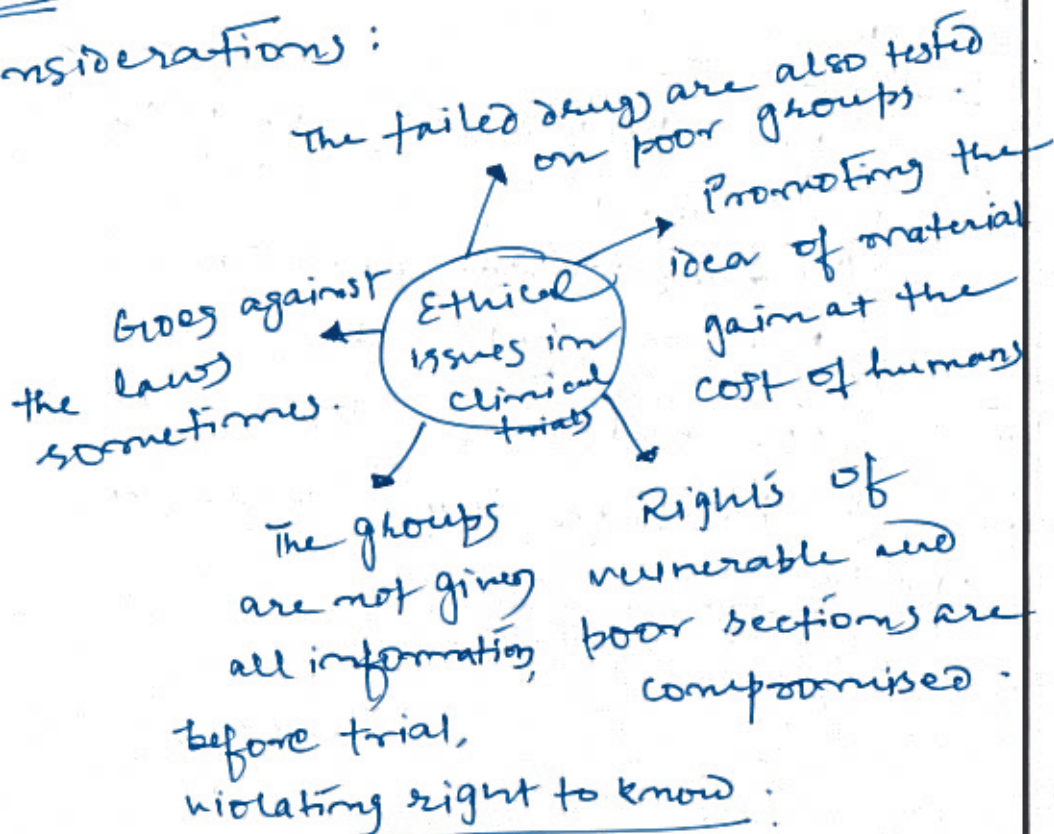 nsiderations :
The failed drugs are also tested
on poor groups .
Promoting the
idea of material
gain at the
cost of humans
Ethical
issues in
clinical
trials
Goes against
the laws
sometimes.
The groups
are not given
all information,
before trial,
violating right to know .
Rights of
vulnerable and
poor sections are
compromised .